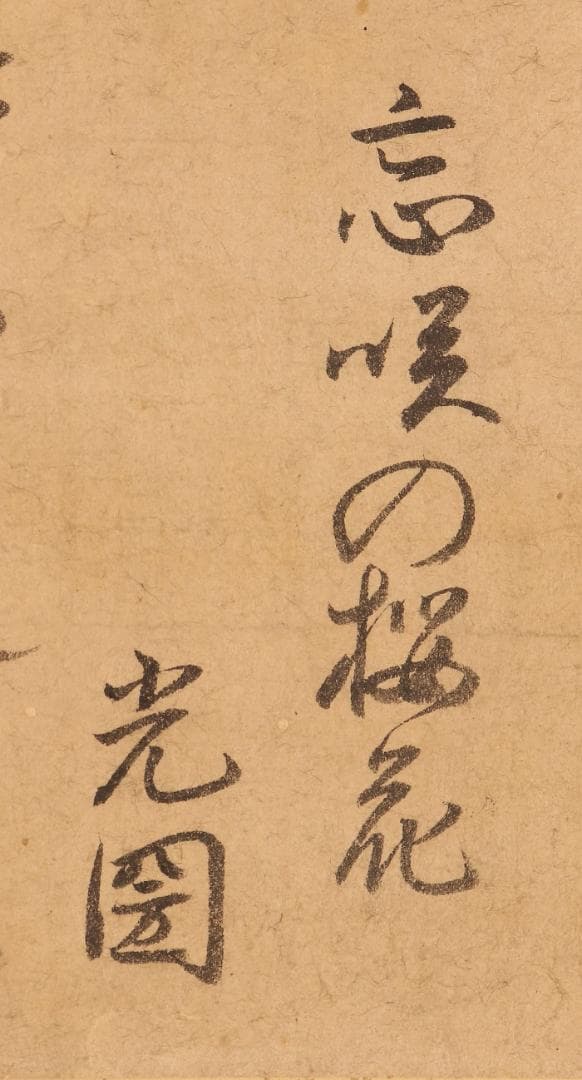 忘咲の桜花
光圀